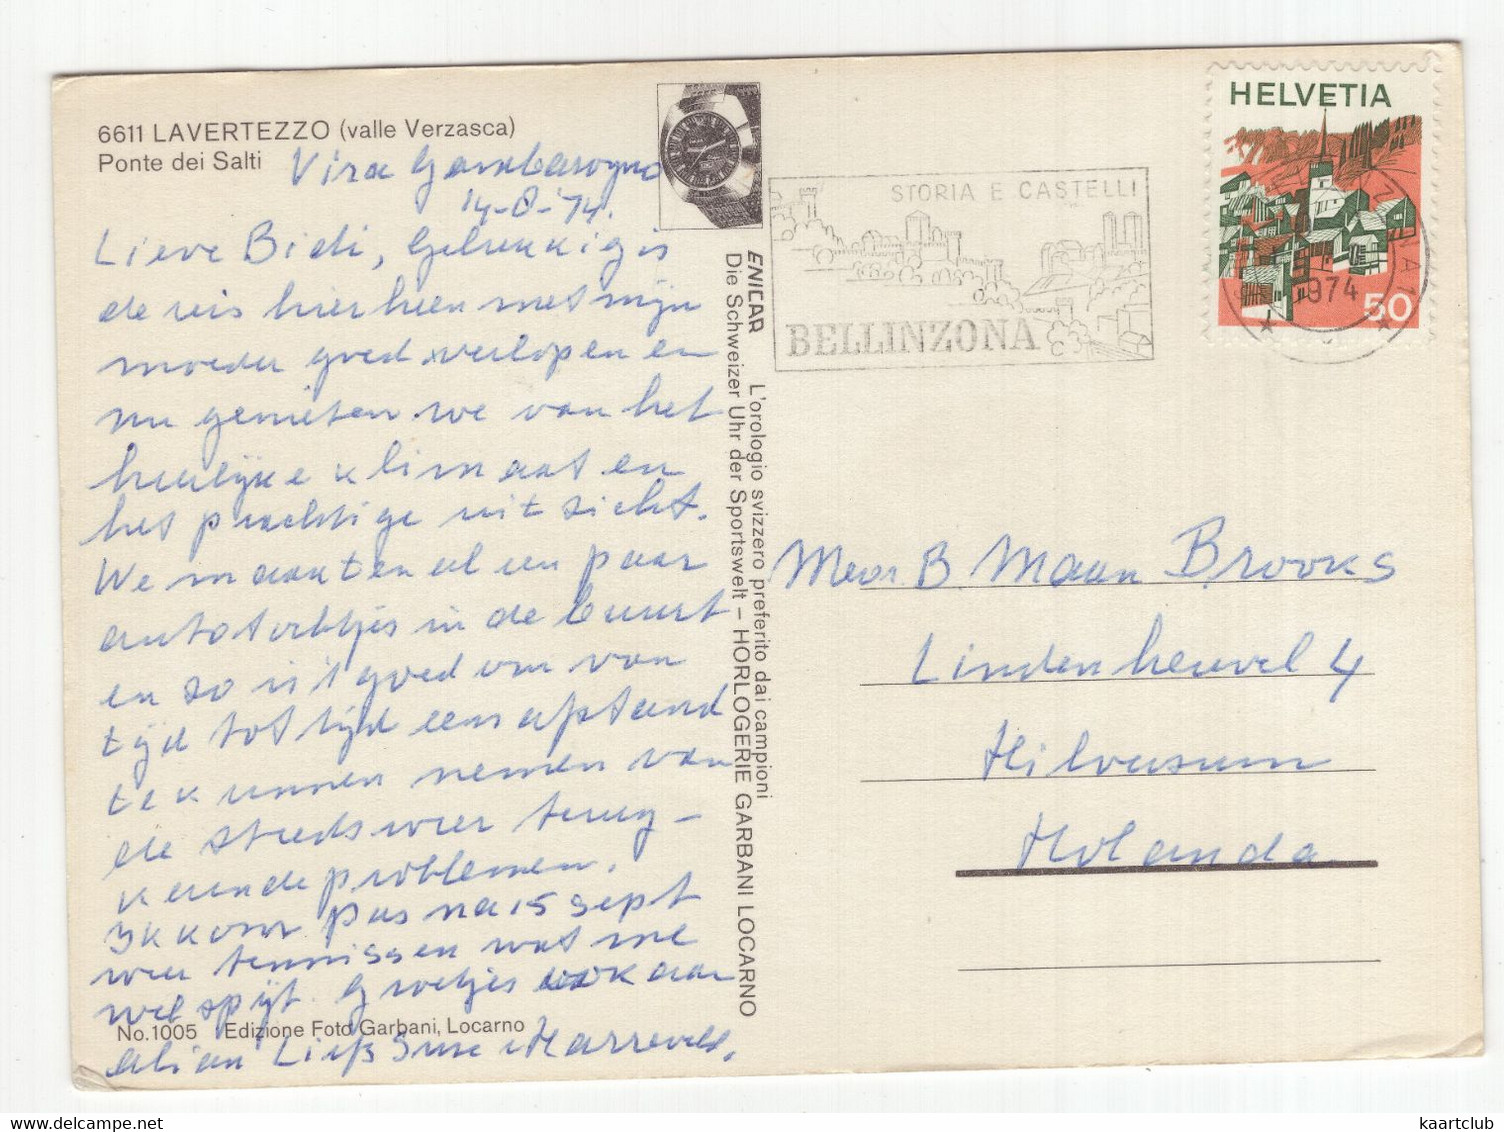 6611 LAVERTEZZO (valle Verzasca)
Ponte dei Salti
Vira Gambarogno
14-8-'74.
Lieve Bidi, Gelukkig is
de reis hierheen met mijn
moeder goed verlopen en
nu genieten we van het
heerlijke klimaat en
het prachtige uitzicht.
We maakten al een paar
autotochtjes in de buurt
en zo is 't goed om van
tijd tot tijd eens afstand
te kunnen nemen van
de steeds weer terug-
kerende problemen.
Ik kom pas na 15 sept
weer tennissen wat me
wel spijt. Groetjes ook aan
No. 1005 Edizione Foto Garbani, Locarno
Liefs Suse Harreveld.
ENICAR L'orologio svizzero preferito dai campioni
Die Schweizer Uhr der Sportswelt – HORLOGERIE GARBANI LOCARNO
STORIA E CASTELLI
BELLINZONA
HELVETIA
974
50
Mevr B Maan Brooks
Lindenheuvel 4
Hilversum
Holanda
kaartclub